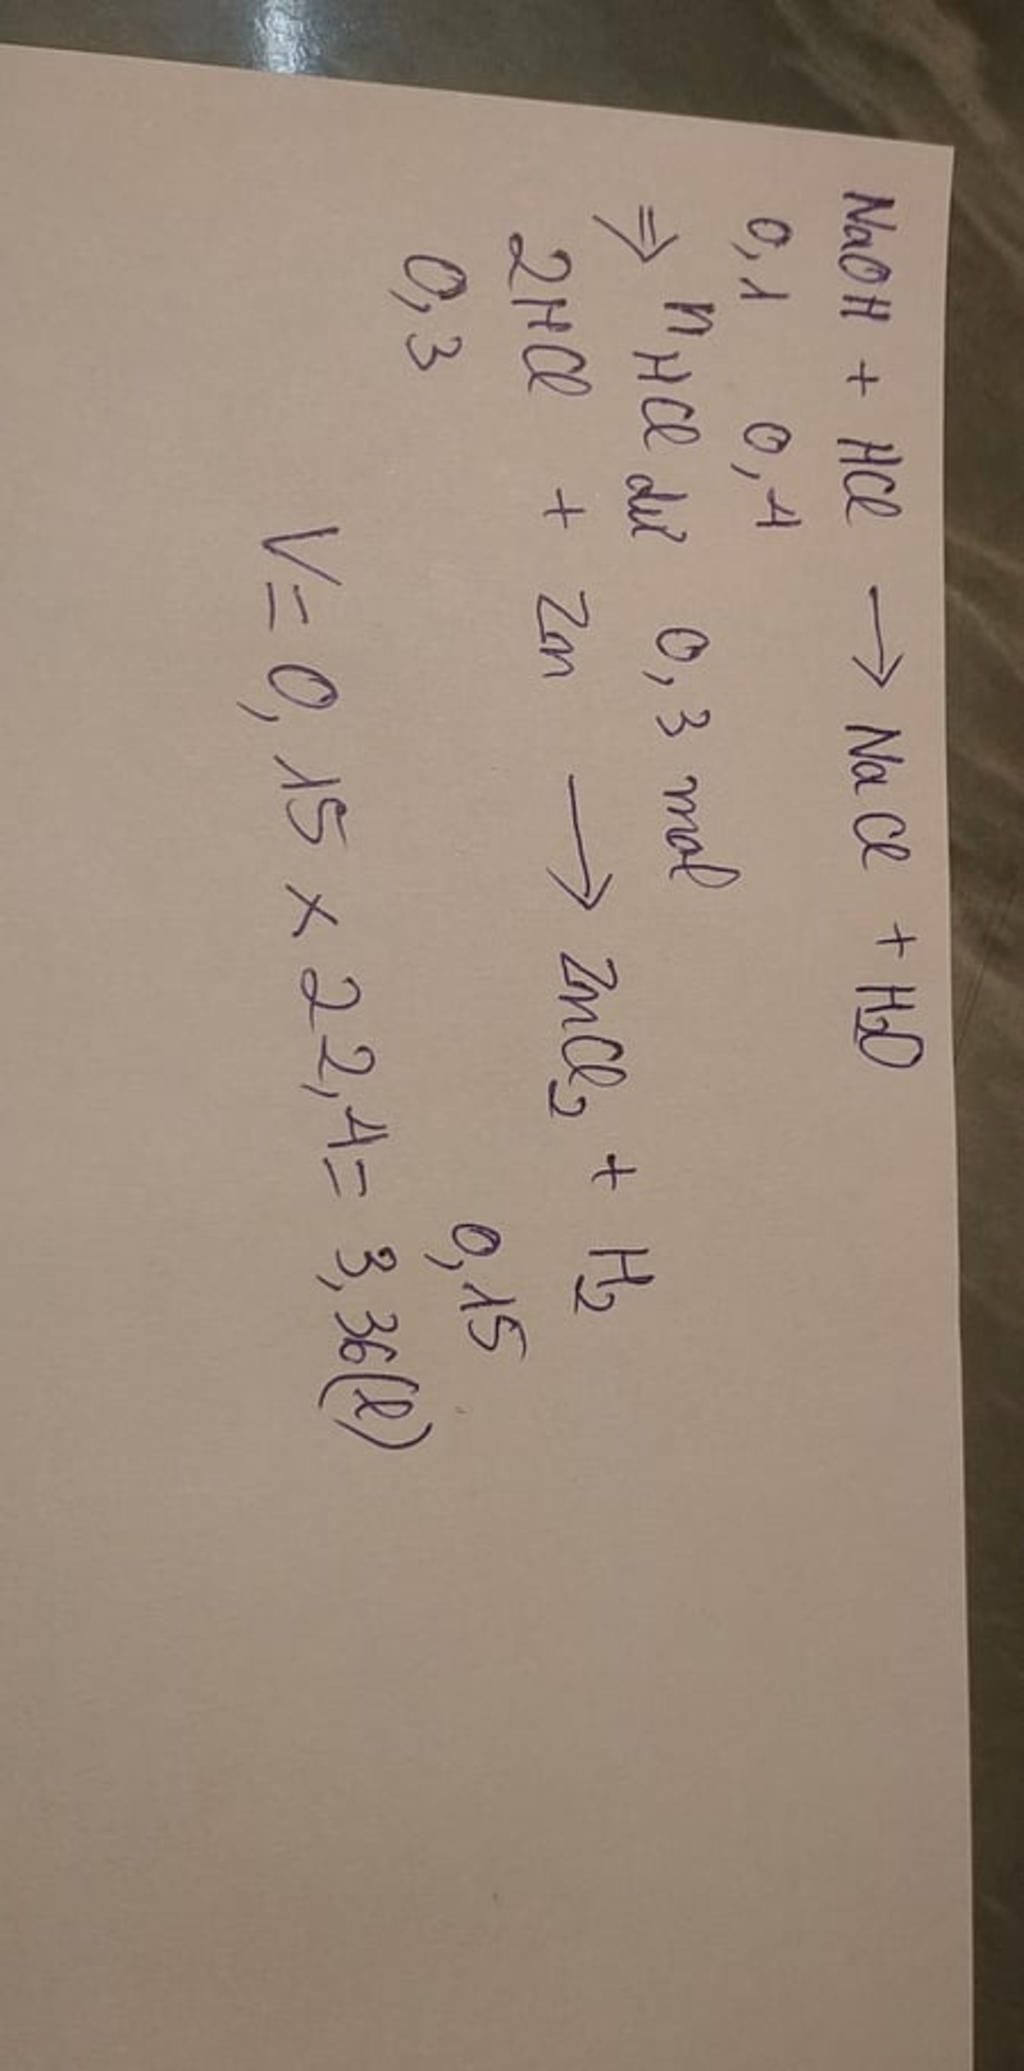 NaOH + HCl → NaCl + H2O
0,1 0,4
⇒ nHCl dư 0,3 mol
2HCl + Zn → ZnCl2 + H2
0,3 0,15
V = 0,15 × 22,4 = 3,36 (l)